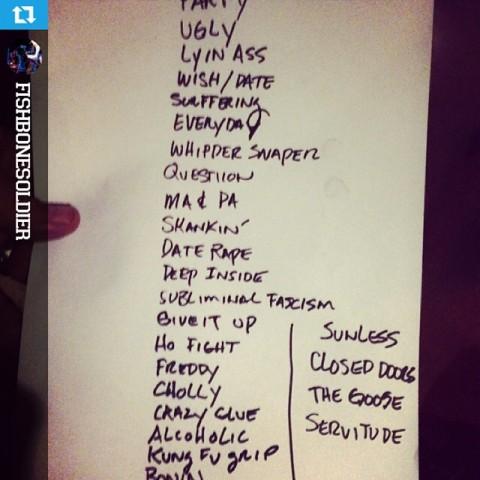 PARTY
UGLY
LYIN ASS
WISH/DATE
SURFFERING
EVERYDAY
WHIPPER SNAPER
QUESTION
MA & PA
SKANKIN'
DATE RAPE
DEEP INSIDE
SUBLIMINAL FASCISM
GIVE IT UP
HO FIGHT
FREDDY
CHOLLY
CRAZY GLUE
ALCOHOLIC
KUNG FU GRIP
BONIN
SUNLESS
CLOSED DOORS
THE GOOSE
SERVITUDE
FISHBONESOLDIER